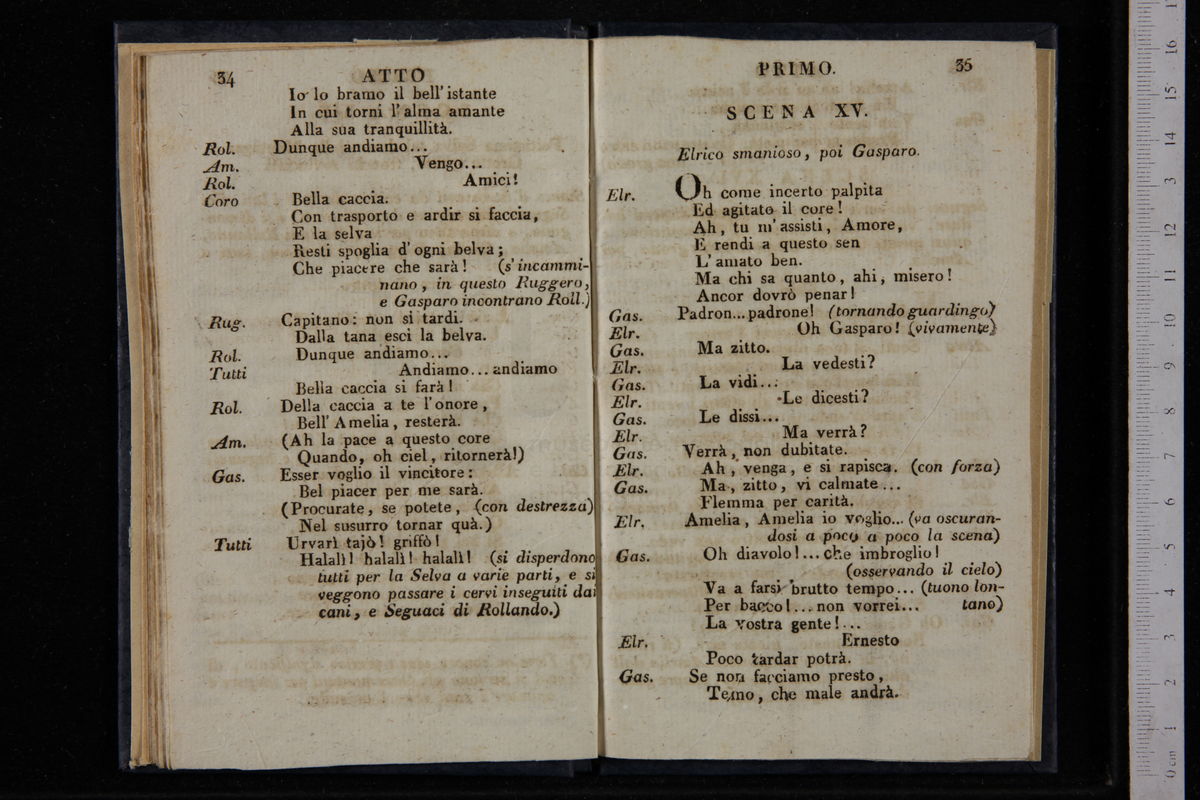 34 ATTO
Io lo bramo il bell' istante
In cui torni l' alma amante
Alla sua tranquillità.
Rol. Dunque andiamo...
Am. Vengo...
Rol. Amici!
Coro Bella caccia.
Con trasporto e ardir si faccia,
E la selva
Resti spoglia d' ogni belva;
Che piacere che sarà! (s' incammi-
nano, in questo Ruggero,
e Gasparo incontrano Roll.)
Rug. Capitano: non si tardi.
Dalla tana esci la belva.
Rol. Dunque andiamo...
Tutti Andiamo... andiamo
Bella caccia si farà!
Rol. Della caccia a te l' onore,
Bell' Amelia, resterà.
Am. (Ah la pace a questo core
Quando, oh ciel, ritornerà!)
Gas. Esser voglio il vincitore:
Bel piacer per me sarà.
(Procurate, se potete, (con destrezza)
Nel susurro tornar quà.)
Tutti Urvarì tajò! griffò!
Halalì! halalì! halalì! (si disperdono
tutti per la Selva a varie parti, e si
veggono passare i cervi inseguiti dai
cani, e Seguaci di Rollando.)
PRIMO. 35
SCENA XV.
Elrico smanioso, poi Gasparo.
Elr. Oh come incerto palpita
Ed agitato il core!
Ah, tu m' assisti, Amore,
E rendi a questo sen
L' amato ben.
Ma chi sa quanto, ahi, misero!
Ancor dovrò penar!
Gas. Padron... padrone! (tornando guardingo)
Elr. Oh Gasparo! (vivamente)
Gas. Ma zitto.
Elr. La vedesti?
Gas. La vidi...
Elr. Le dicesti?
Gas. Le dissi...
Elr. Ma verrà?
Gas. Verrà, non dubitate.
Elr. Ah, venga, e si rapisca. (con forza)
Gas. Ma, zitto, vi calmate...
Flemma per carità.
Elr. Amelia, Amelia io voglio... (va oscuran-
dosi a poco a poco la scena)
Gas. Oh diavolo!... che imbroglio!
(osservando il cielo)
Va a farsi brutto tempo... (tuono lon-
Per bacco!... non vorrei... tano)
La vostra gente!...
Elr. Ernesto
Poco tardar potrà.
Gas. Se non facciamo presto,
Temo, che male andrà.
0 cm 1 2 3 4 5 6 7 8 9 10 11 12 13 14 15 16